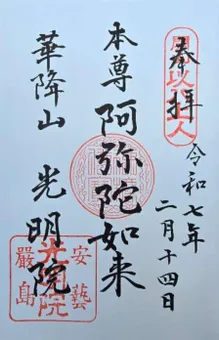 奉拝
令和七年
二月十四日
本尊 阿弥陀如来
華降山 光明院
安藝
嚴島
光明院